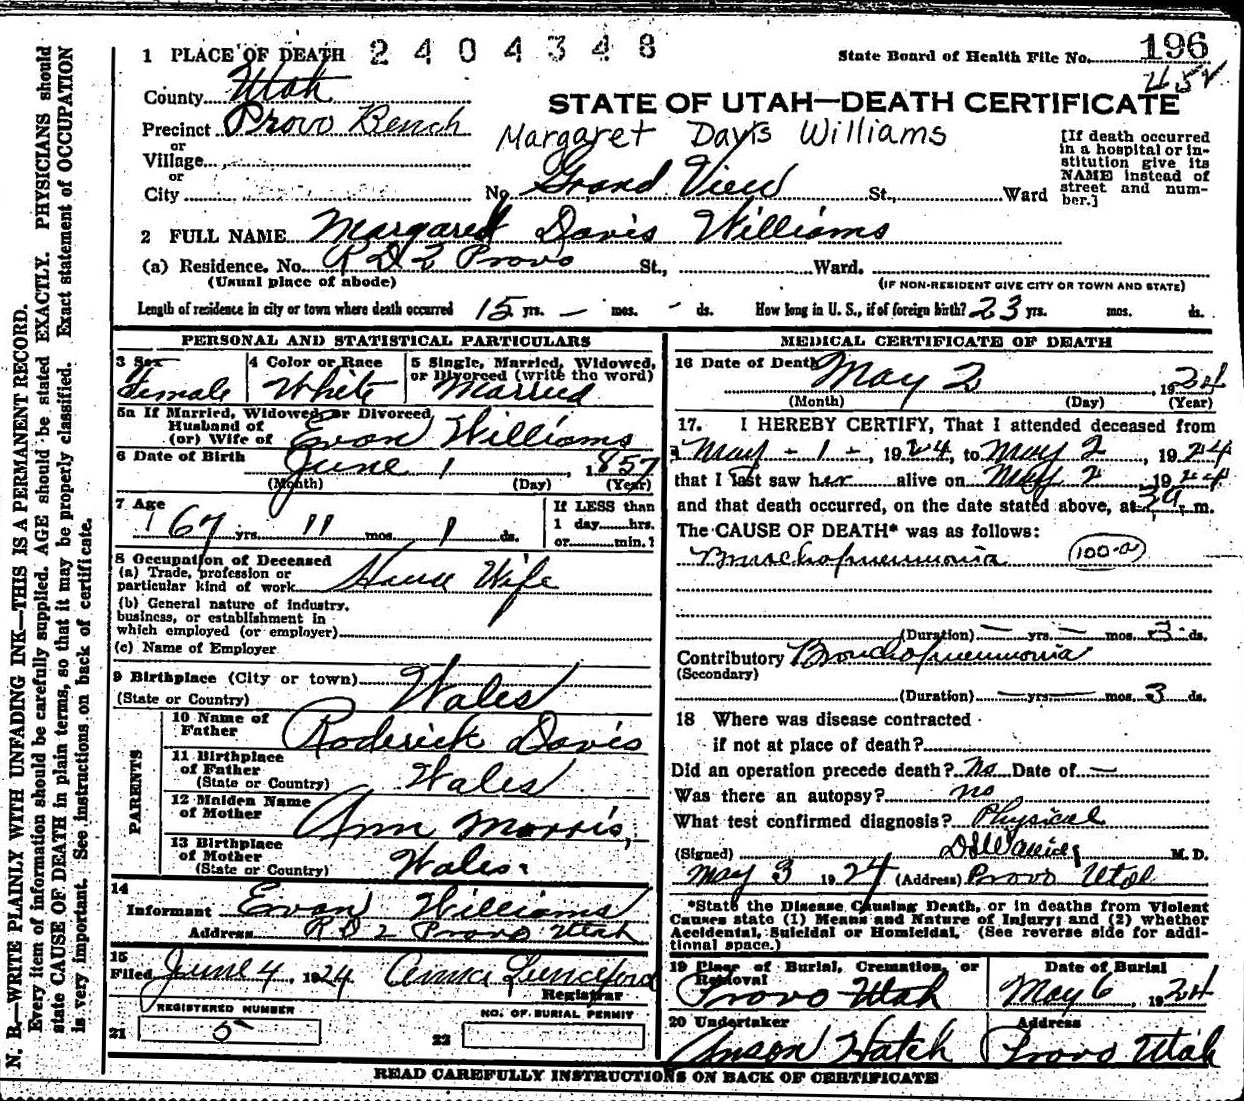 1 PLACE OF DEATH 2404348
State Board of Health File No. 196
452
County Utah
STATE OF UTAH—DEATH CERTIFICATE
Precinct Provo Bench
Margaret Davis Williams
or
Village
or
City
No. Grand View St., Ward
[If death occurred
in a hospital or in-
stitution give its
NAME instead of
street and num-
ber.]
2 FULL NAME Margaret Davis Williams
(a) Residence. No. R D 2 Provo St., Ward.
(Usual place of abode)
(IF NON-RESIDENT GIVE CITY OR TOWN AND STATE)
Length of residence in city or town where death occurred 15 yrs. — mos. - ds. How long in U. S., if of foreign birth? 23 yrs. mos. ds.
PERSONAL AND STATISTICAL PARTICULARS
3 Sex
Female
4 Color or Race
White
5 Single, Married, Widowed,
or Divorced (write the word)
Married
5a If Married, Widowed, or Divorced
Husband of
(or) Wife of Evan Williams
6 Date of Birth
June 1, 1857
(Month) (Day) (Year)
7 Age
67 yrs. 11 mos. 1 ds.
If LESS than
1 day......hrs.
or......min.?
8 Occupation of Deceased
(a) Trade, profession or
particular kind of work House Wife
(b) General nature of industry,
business, or establishment in
which employed (or employer)
(c) Name of Employer
9 Birthplace (City or town)
(State or Country) Wales
PARENTS
10 Name of
Father Roderick Davis
11 Birthplace
of Father
(State or Country) Wales
12 Maiden Name
of Mother Ann Morris,
13 Birthplace
of Mother
(State or Country) Wales.
14
Informant Evan Williams
Address R D 2 Provo Utah
15
Filed June 4, 1924 Anna Lunceford
Registrar
REGISTERED NUMBER
21 5
NO. OF BURIAL PERMIT
22
MEDICAL CERTIFICATE OF DEATH
16 Date of Death May 2 1924
(Month) (Day) (Year)
17. I HEREBY CERTIFY, That I attended deceased from
May - 1 -, 1924, to May 2, 1924
that I last saw her alive on May 2 1924
and that death occurred, on the date stated above, at 3 a. m.
The CAUSE OF DEATH* was as follows:
Bronchopneumonia 100-a
(Duration) — yrs. — mos. 3 ds.
Contributory Bronchopneumonia
(Secondary)
(Duration) — yrs. — mos. 3 ds.
18 Where was disease contracted
if not at place of death?
Did an operation precede death? No Date of —
Was there an autopsy? no
What test confirmed diagnosis? Physical
(Signed) M. D.
May 3 1924 (Address) Provo Utah
*State the Disease Causing Death, or in deaths from Violent
Causes state (1) Means and Nature of Injury; and (2) whether
Accidental, Suicidal or Homicidal. (See reverse side for addi-
tional space.)
19 Place of Burial, Cremation, or
Removal
Provo Utah
Date of Burial
May 6, 1924
20 Undertaker
Anson Hatch
Address
Provo Utah
READ CAREFULLY INSTRUCTIONS ON BACK OF CERTIFICATE
N. B.—WRITE PLAINLY WITH UNFADING INK—THIS IS A PERMANENT RECORD.
Every item of information should be carefully supplied. AGE should be stated EXACTLY. PHYSICIANS should
state CAUSE OF DEATH in plain terms, so that it may be properly classified. Exact statement of OCCUPATION
is very important. See instructions on back of certificate.